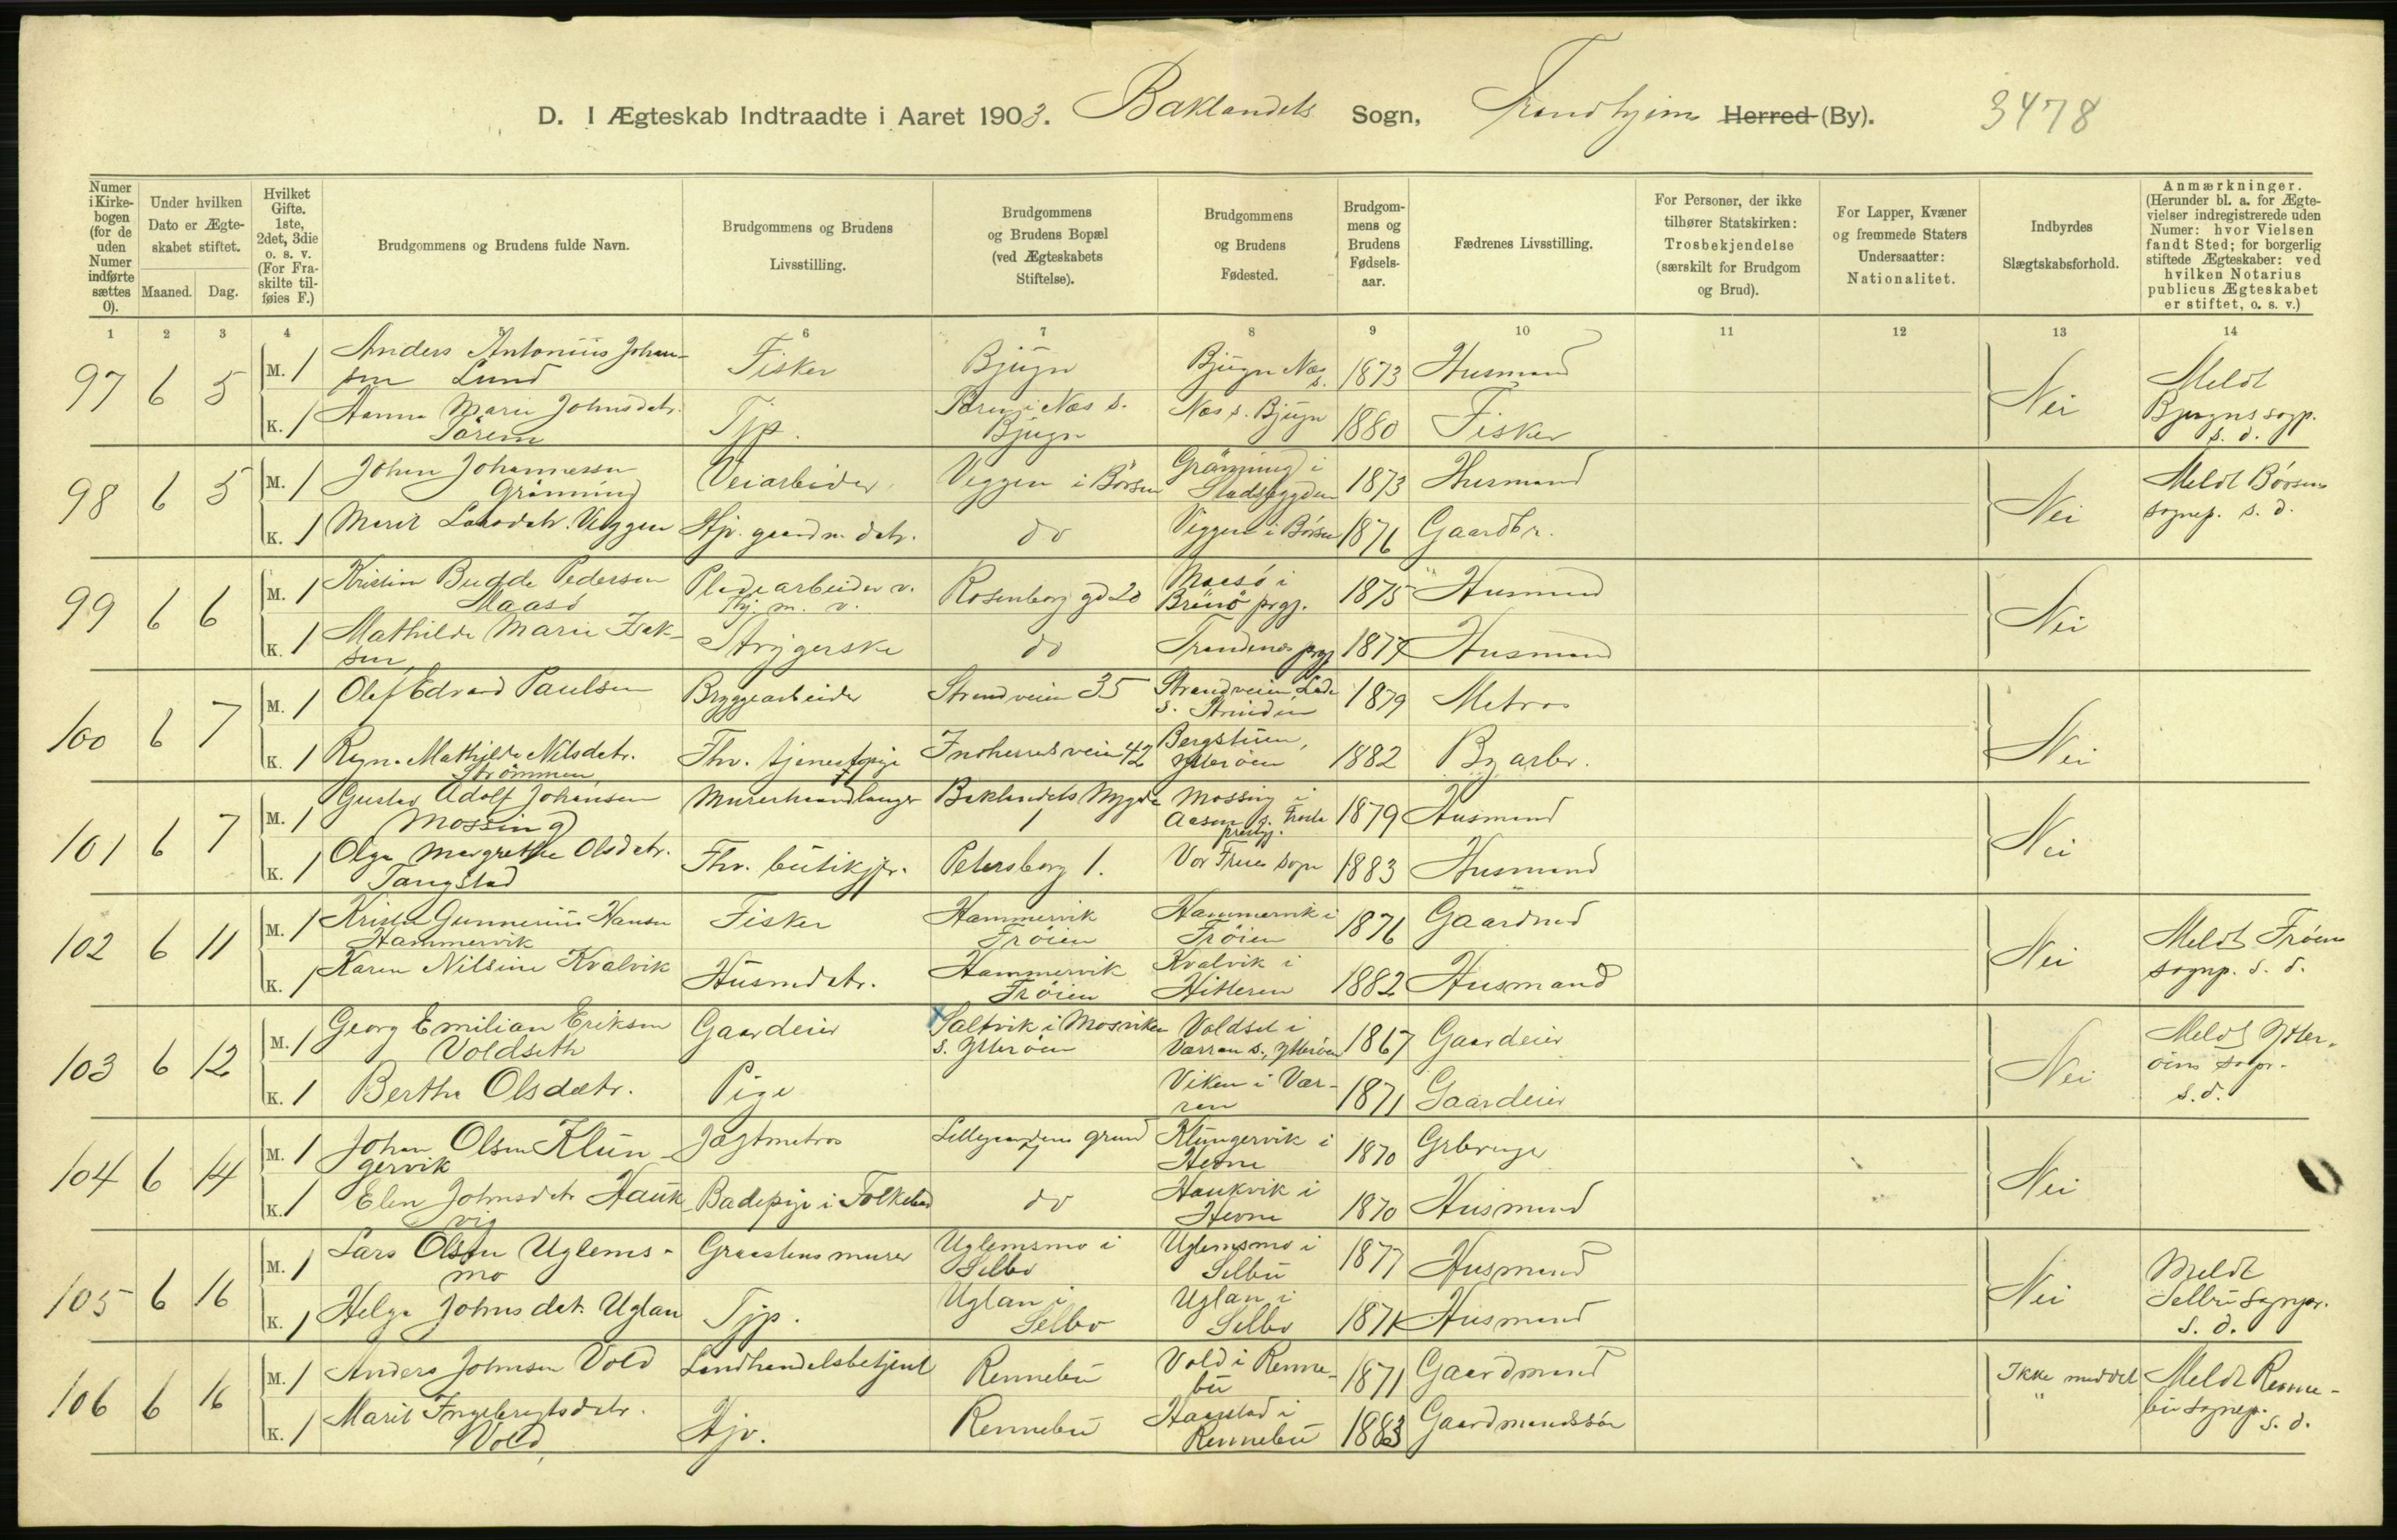 D. I Ægteskab Indtraadte i Aaret 1903. Baklandets Sogn, Trondhjem Herred (By). 3478
Numer i Kirkebogen (for de uden Numer indførte sættes 0).
Under hvilken Dato er Ægteskabet stiftet.
Maaned. Dag.
Hvilket Gifte. 1ste, 2det, 3die o. s. v. (For Fraskilte tilføies F.)
Brudgommens og Brudens fulde Navn.
Brudgommens og Brudens Livsstilling.
Brudgommens og Brudens Bopæl (ved Ægteskabets Stiftelse).
Brudgommens og Brudens Fødested.
Brudgommens og Brudens Fødselsaar.
Fædrenes Livsstilling.
For Personer, der ikke tilhører Statskirken: Trosbekjendelse (særskilt for Brudgom og Brud).
For Lapper, Kvæner og fremmede Staters Undersaatter: Nationalitet.
Indbyrdes Slægtskabsforhold.
Anmærkninger. (Herunder bl. a. for Ægtevielser indregistrerede uden Numer: hvor Vielsen fandt Sted; for borgerlig stiftede Ægteskaber: ved hvilken Notarius publicus Ægteskabet er stiftet, o. s. v.)
1 2 3 4 5 6 7 8 9 10 11 12 13 14
97 6 5 M. 1 Anders Antonius Johansen Lund Fisker Bjugn Bjugn Næs s. 1873 Husmand Nei Meldt Bjugns sogp. s. d.
K. 1 Hanna Marie Johnsdatr. Tørem Tjp. Tørem i Næs s. Bjugn Næs s. Bjugn 1880 Fisker
98 6 5 M. 1 Johan Johannessen Grønning Veiarbeider Veggen i Børsen Grønning i Stadsbygden 1873 Husmand Nei Meldt Børsens sognep. s. d.
K. 1 Marit Larsdatr. Veggen Hjv. gaardm. datr. do Veggen i Børsen 1876 Gaardbr.
99 6 6 M. 1 Kristian Budde Pedersen Maasø Pladearbeider v. Thj. m. v. Rosenborg gd 20 Maasø i Brønø prgj. 1875 Husmand Nei
K. 1 Mathilde Marie Isaksen Strygerske do Trondenes prgj 1877 Husmand
100 6 7 M. 1 Olaf Edvard Paulsen Bryggearbeider Strandveien 35 Strandveien Lade s. Strinden 1879 Matros Nei
K. 1 Ragna Mathilde Nilsdatr. Strømmen Fhv. tjenestepige Indherredsveien 42 Bergstuen, Ytterøen 1882 Byarbr.
101 6 7 M. 1 Gustav Adolf Johansen Mossing Murerhaandlanger Baklandets Nygade 1 Mossing i Aasen s. Frosta prestgj. 1879 Husmand Nei
K. 1 Olga Margrethe Olsdatr. Tangstad Fhv. butikjfr. Petersborg 1. Vor Frue sogn 1883 Husmand
102 6 11 M. 1 Gunnerius Hansen Hammervik Fisker Hammervik Frøien Hammervik i Frøien 1876 Gaardmd Nei Meldt Frøiens sognp. s. d.
K. 1 Karen Nilsine Kvalvik Husmdatr. Hammervik Frøien Kvalvik i Hitteren 1882 Husmand
103 6 12 M. 1 Georg Emilian Eriksen Voldseth Gaardeier Saltvik i Mosviken s. Ytterøen Voldset i Værran s., Ytterøen 1867 Gaardeier Nei Meldt Ytterøens sogpr. s. d.
K. 1 Bertha Olsdatr. Pige Viken i Værran 1871 Gaardeier
104 6 14 M. 1 Johan Olsen Klungervik Jagtmatros Lillegaardens grund 7 Klungervik i Hevne 1870 Grbruger Nei
K. 1 Elen Johnsdatr Haukvig Badepige i Folkebad do Haukvik i Hevne 1870 Husmand
105 6 16 M. 1 Lars Olsen Uglemsmo Graastensmurer Uglemsmo i Selbo Uglemsmo i Selbu 1877 Husmand Nei Meldt Selbu sognpr. s. d.
K. 1 Helga Johnsdatr. Uglan Tjp. Uglan i Selbo Uglan i Selbo 1871 Husmand
106 6 16 M. 1 Anders Johnsen Vold Landhandelsbetjent Rennebu Vold i Rennebu 1871 Gaardmand Ikke meddelt Meldt Rennebu sognep. s. d.
K. 1 Marit Ingebrigtsdatr. Vold Hjv. Rennebu Haarstad i Rennebu 1883 Gaardmandssøn "